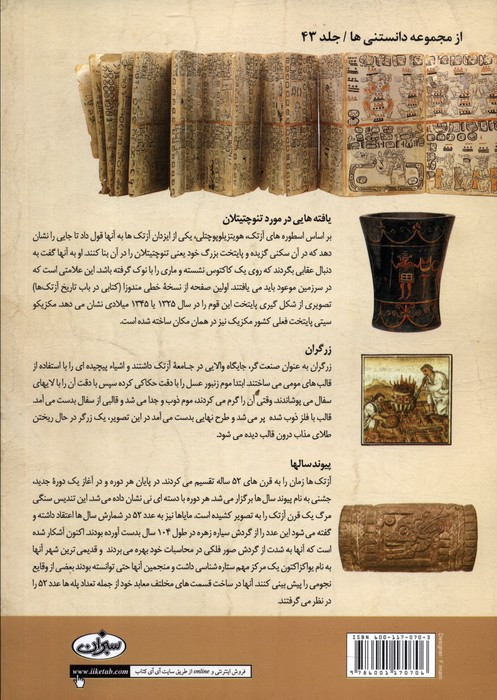 از مجموعه دانستنی ها / جلد ۴۳
یافته هایی در مورد تنوچتیتلان
بر اساس اسطوره های آزتک، هویتزیلوپوچتلی، یکی از ایزدان آزتک ها به آنها قول داد تا جایی را نشان
دهد که در آن سکنی گزیده و پایتخت بزرگ خود یعنی تنوچتیتلان را در آن بنا کنند. او به آنها گفت به
دنبال عقابی بگردند که روی یک کاکتوس نشسته و ماری را با نوک گرفته باشد. این علامتی است که
در سرزمین موعود باید می یافتند. اولین صفحه از نسخهٔ خطی مندوزا (کتابی در باب تاریخ آزتک‌ها)
تصویری از شکل گیری پایتخت این قوم را در سال ۱۳۲۵ یا ۱۳۴۵ میلادی نشان می دهد. مکزیکو
سیتی پایتخت فعلی کشور مکزیک نیز در همان مکان ساخته شده است.
زرگران
زرگران به عنوان صنعت گر، جایگاه والایی در جامعهٔ آزتک داشتند و اشیاء پیچیده ای را با استفاده از
قالب های مومی می ساختند. ابتدا موم زنبور عسل را با دقت حکاکی کرده سپس با دقت آن را با لایهای
سفال می پوشاندند. وقتی آن را گرم می کردند، موم ذوب و جدا می شد و قالبی از سفال بدست می آمد.
قالب با فلز ذوب شده پر می‌شد و طرح نهایی بدست می آمد در این تصویر، یک زرگر در حال ریختن
طلای مذاب درون قالب دیده می شود.
پیوند سالها
آزتک ها زمان را به قرن های ۵۲ ساله تقسیم می کردند. در پایان هر دوره و در آغاز یک دورهٔ جدید،
جشنی به نام پیوند سال ها برگزار می شد. هر دوره با دسته ای نی نشان داده می‌شد. این تندیس سنگی
مرگ یک قرن آزتک را به تصویر کشیده است. مایاها نیز به عدد ۵۲ در شمارش سال ها اعتقاد داشته و
گفته می شود این عدد را از گردش سیاره زهره در طول ۱۰۴ سال بدست آورده بودند. اکنون آشکار شده
است که آنها به شدت از گردش صور فلکی در محاسبات خود بهره می بردند و قدیمی ترین شهر آنها
به نام یواکزاکتون یک مرکز مهم ستاره شناسی داشت و منجمین آنها حتی توانسته بودند بعضی از وقایع
نجومی را پیش بینی کنند. آنها در ساخت قسمت های مختلف معابد خود از جمله تعداد پله ها عدد ۵۲ را
در نظر می گرفتند.
سبزان
فروش اینترنتی و online از طریق سایت آی آی کتاب
www.iiketab.com
ISBN 600-117-070-3
9786001170706